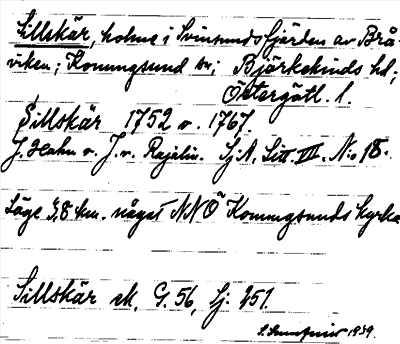 Sillskär, holme i Svinsundsfjärden av Brå-
viken; Konungsund sn; Björkekinds hd;
Östergötl. l.
Sillskär 1752 o. 1767.
J. Hahn o. J. v. Rajalin. SjA. Litt III. No 18.
Läge 3,8 km. något NNÖ Konungsunds kyrka
Sillskär ek. G. 56, Sj. 251.
1939.